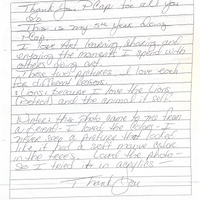 Thank you PCap for all you
do.
This is my 5th year doing
PCap.
I love Art learning, sharing and
enjoying the moments I spend with
others doing art.
These two pictures I love each
for different reasons.
Lions: Because I love the Lions,
(Detroit) and the animal itself.
Winter: this photo came to me from
a friend - I loved the colors - I
never seen a picture that looked
like it had a soft mauve color
in the trees. Loved the photo -
So I tried it in acrylics -
Thank You